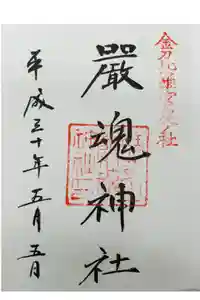 金刀比羅宮奥社
嚴魂神社
平成三十年五月五日